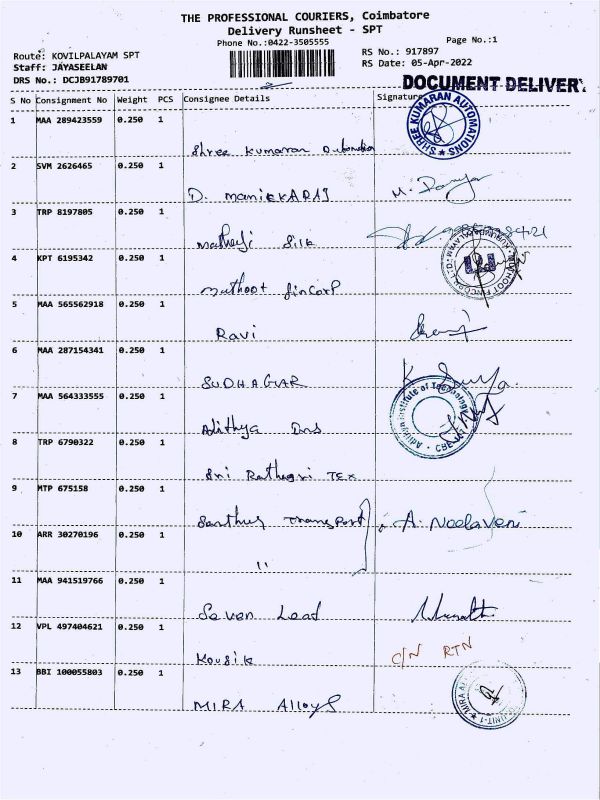 THE PROFESSIONAL COURIERS, Coimbatore
Delivery Runsheet - SPT
Phone No.:0422-3505555
Page No.:1
Route: KOVILPALAYAM SPT
RS No.: 917897
Staff: JAYASEELAN
RS Date: 05-Apr-2022
DRS No.: DCJB91789701
DOCUMENT DELIVER
S No Consignment No Weight PCS Consignee Details Signature
1 MAA 289423559 0.250 1
Shree Kumaran
SHREE KUMARAN AUTOMATIONS
2 SVM 2626465 0.250 1
D. MANICKARAJ
3 TRP 8197805 0.250 1
Silk
4 KPT 6195342 0.250 1
Muthoot fincorp
5 MAA 565562918 0.250 1
Ravi
6 MAA 287154341 0.250 1
SUDHAGAR K. Surya.
7 MAA 564333555 0.250 1
Adithya Ins
Adithya Institute of Technology
8 TRP 6790322 0.250 1
Sri Rathagri Tex
9 MTP 675158 0.250 1
Transport A. Neelaveni
10 ARR 30270196 0.250 1
"
11 MAA 941519766 0.250 1
Seven Lead
12 VPL 497404621 0.250 1
Kousik C/N RTN
13 BBI 100055803 0.250 1
MIRA Alloys
UNIT-1 MIRA